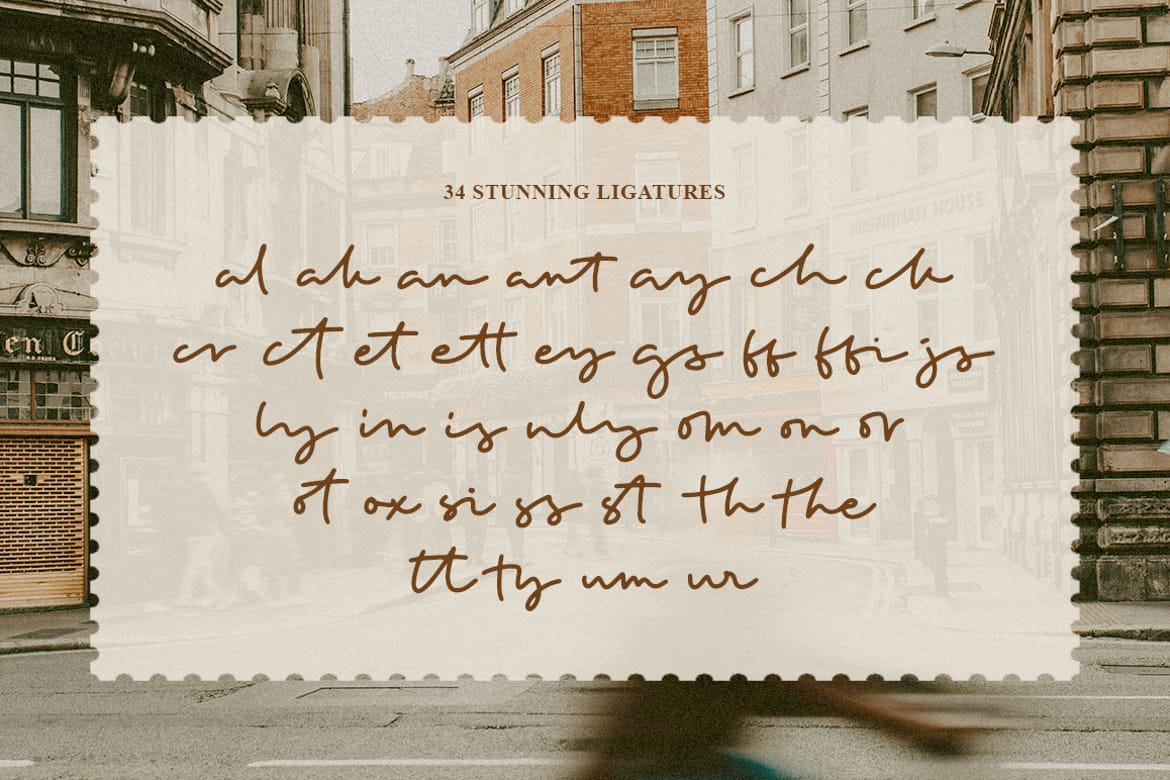 34 STUNNING LIGATURES
al ak an ant ay ch ck
cr ct et ett ey gs ff ffi js
ly in is nly om on or
ot ox si ss st th the
tt ty um ur
ARDFINNAN HOUSE
en C